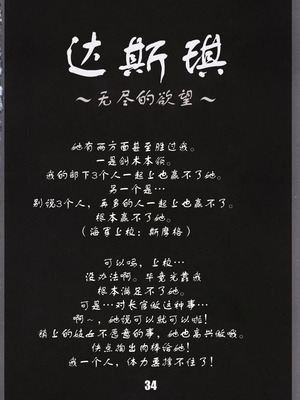 达斯琪
～无尽的欲望～
她有两方面甚至胜过我。
一是剑术本领。
我的部下3个人一起上也赢不了她。
另一个是…
别说3个人，再多的人一起上也赢不了她。
根本赢不了她。
（海军上校：斯摩格）
可以吗，上校…
没办法啊。毕竟光靠我
根本满足不了她。
可是…对长官做这种事…
啊～，她说可以就可以啦！
换上的彼女不愿意的事，她也高兴做哦。
快点掏出肉棒给她！
我一个人，体力要撑不住了！
34